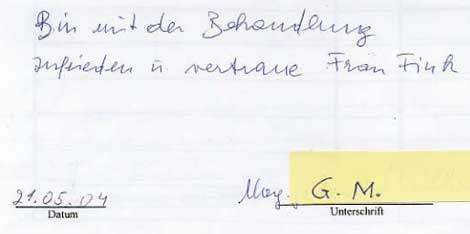 Bin mit der Behandlung
zufrieden u vertraue Frau Fink
21.05.04 Mag. G. M.
Datum Unterschrift